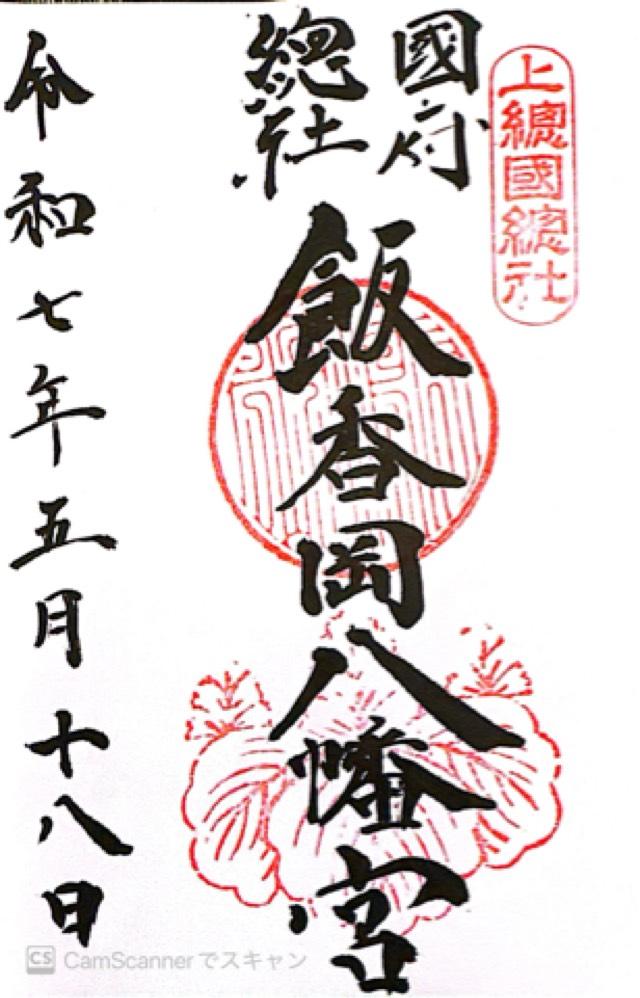 上總國總社
國府
總社
飯香岡八幡宮
令和七年五月十八日
CS CamScannerでスキャン